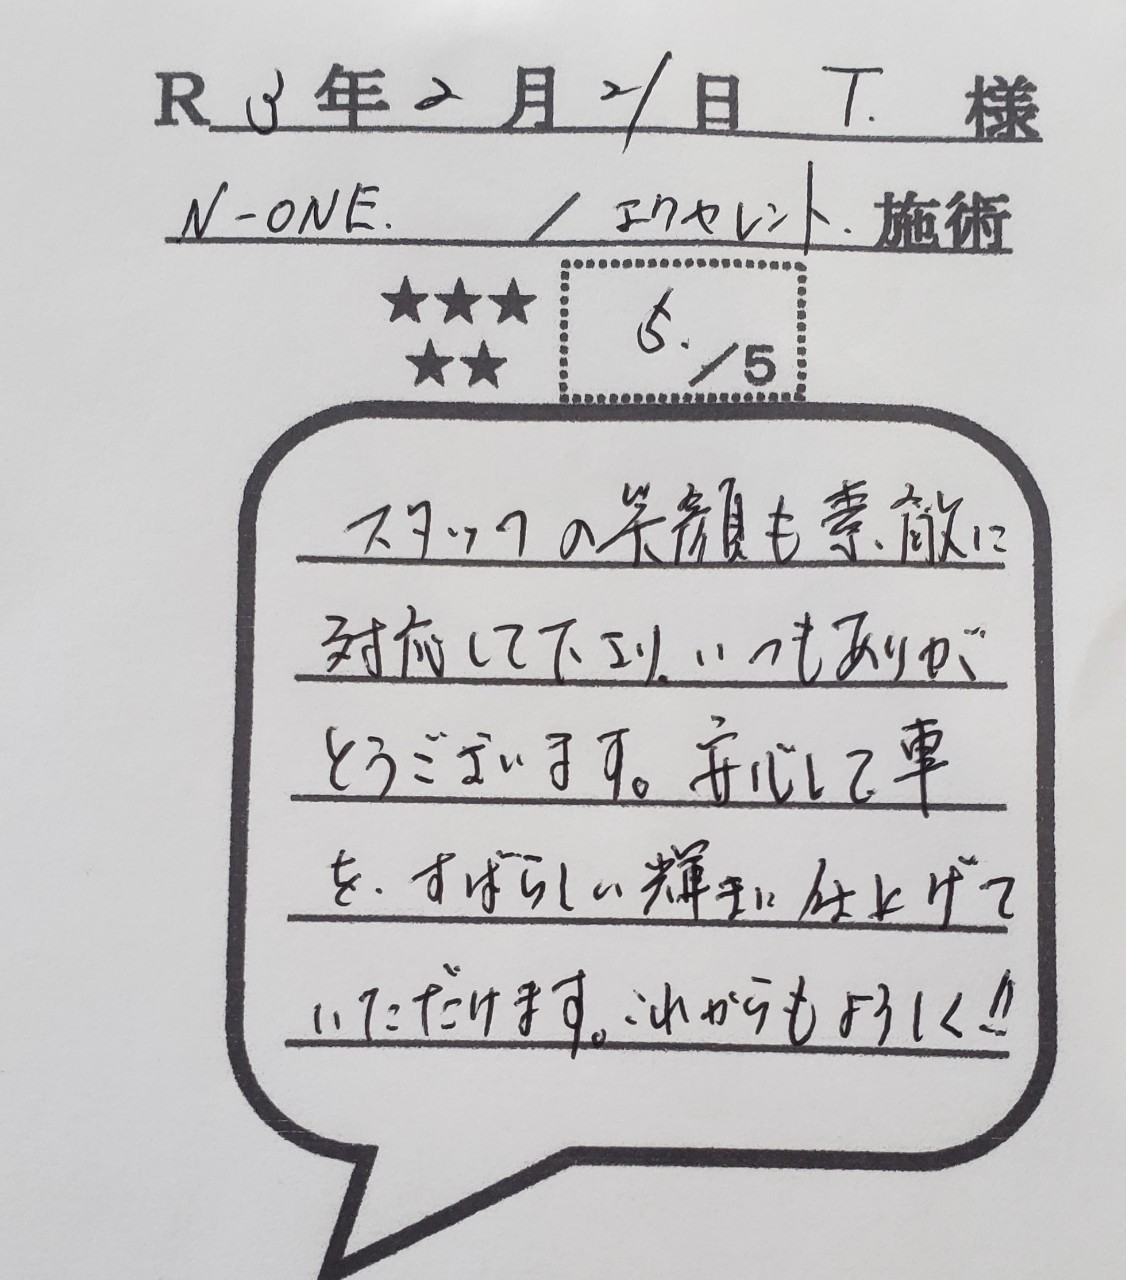 R 3 年 2 月 21 日 T. 様
N-ONE. / エクセレント. 施術
★★★
★★
5. /5
スタッフの笑顔も素敵に
対応して下さり、いつもありが
とうございます。安心して車
を、すばらしい輝きに仕上げて
いただけます。これからもよろしく!!